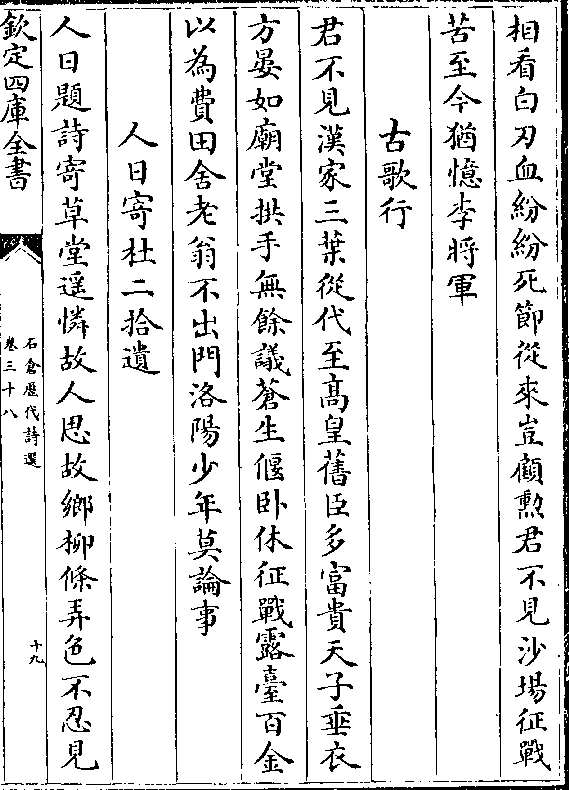 相看白刃血紛紛死節從來豈顧勲君不見沙場征戰
苦至今猶憶李將軍
古歌行
君不見漢家三葉從代至髙皇舊臣多富貴天子垂衣
方晏如廟堂拱手無餘議蒼生偃卧休征戰露臺百金
以為費田舍老翁不出門洛陽少年莫論事
人日寄杜二拾遺
人日題詩寄草堂遥憐故人思故鄉柳條弄色不忍見
欽定四庫全書
石倉歴代詩選
卷三十八
十九